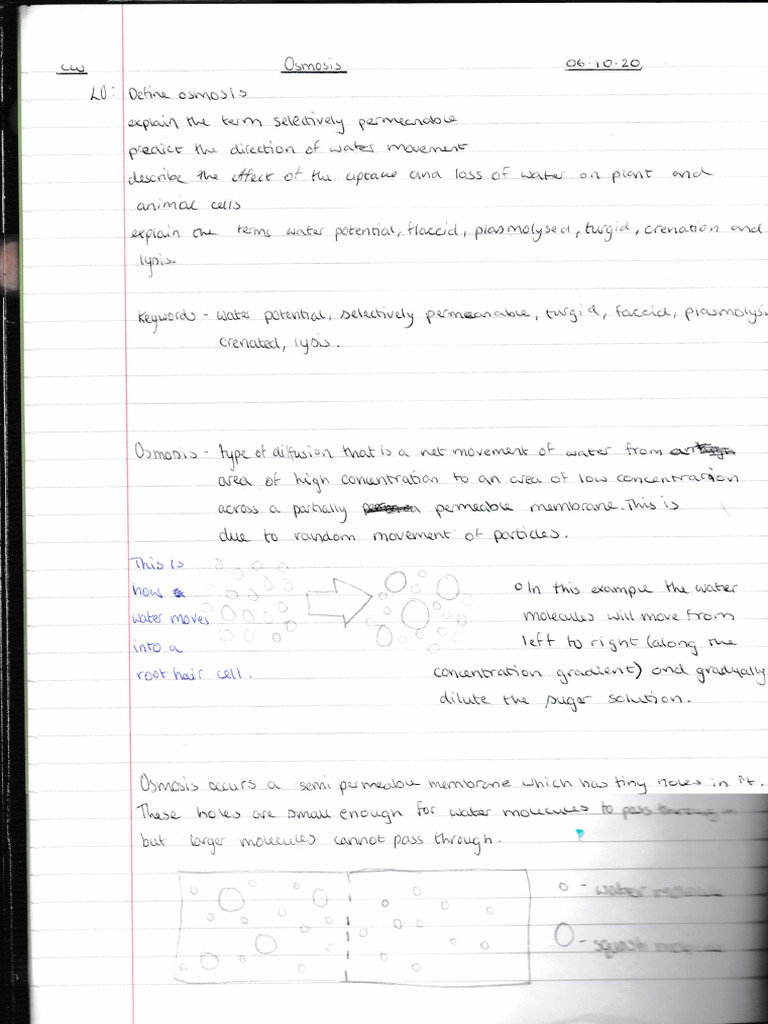 CW Osmosis 06.10.20
LO: Define osmosis
explain the term selectively permeanable
predict the direction of water movement
describe the effect of the uptake and loss of water on plant and
animal cells
explain the terms water potential, flaccid, plasmolysed, turgid, crenation and
lysis.
Keywords - water potential, selectively permeanable, turgid, faccid, plasmolysi
crenated, lysis.
Osmosis - type of diffusion that is a net movement of water from
area of high concentration to an area of low concentration
across a partially permeable membrane. This is
due to random movement of particles.
This is
how
water moves
into a
root hair cell.
In this example the water
molecules will move from
left to right (along the
concentration gradient) and gradually
dilute the suger solution.
Osmosis occurs a semi permeable membrane which has tiny holes in it.
These holes are small enough for water molecules to pass through
but larger molecules cannot pass through.
- water molecule
- squash molecule